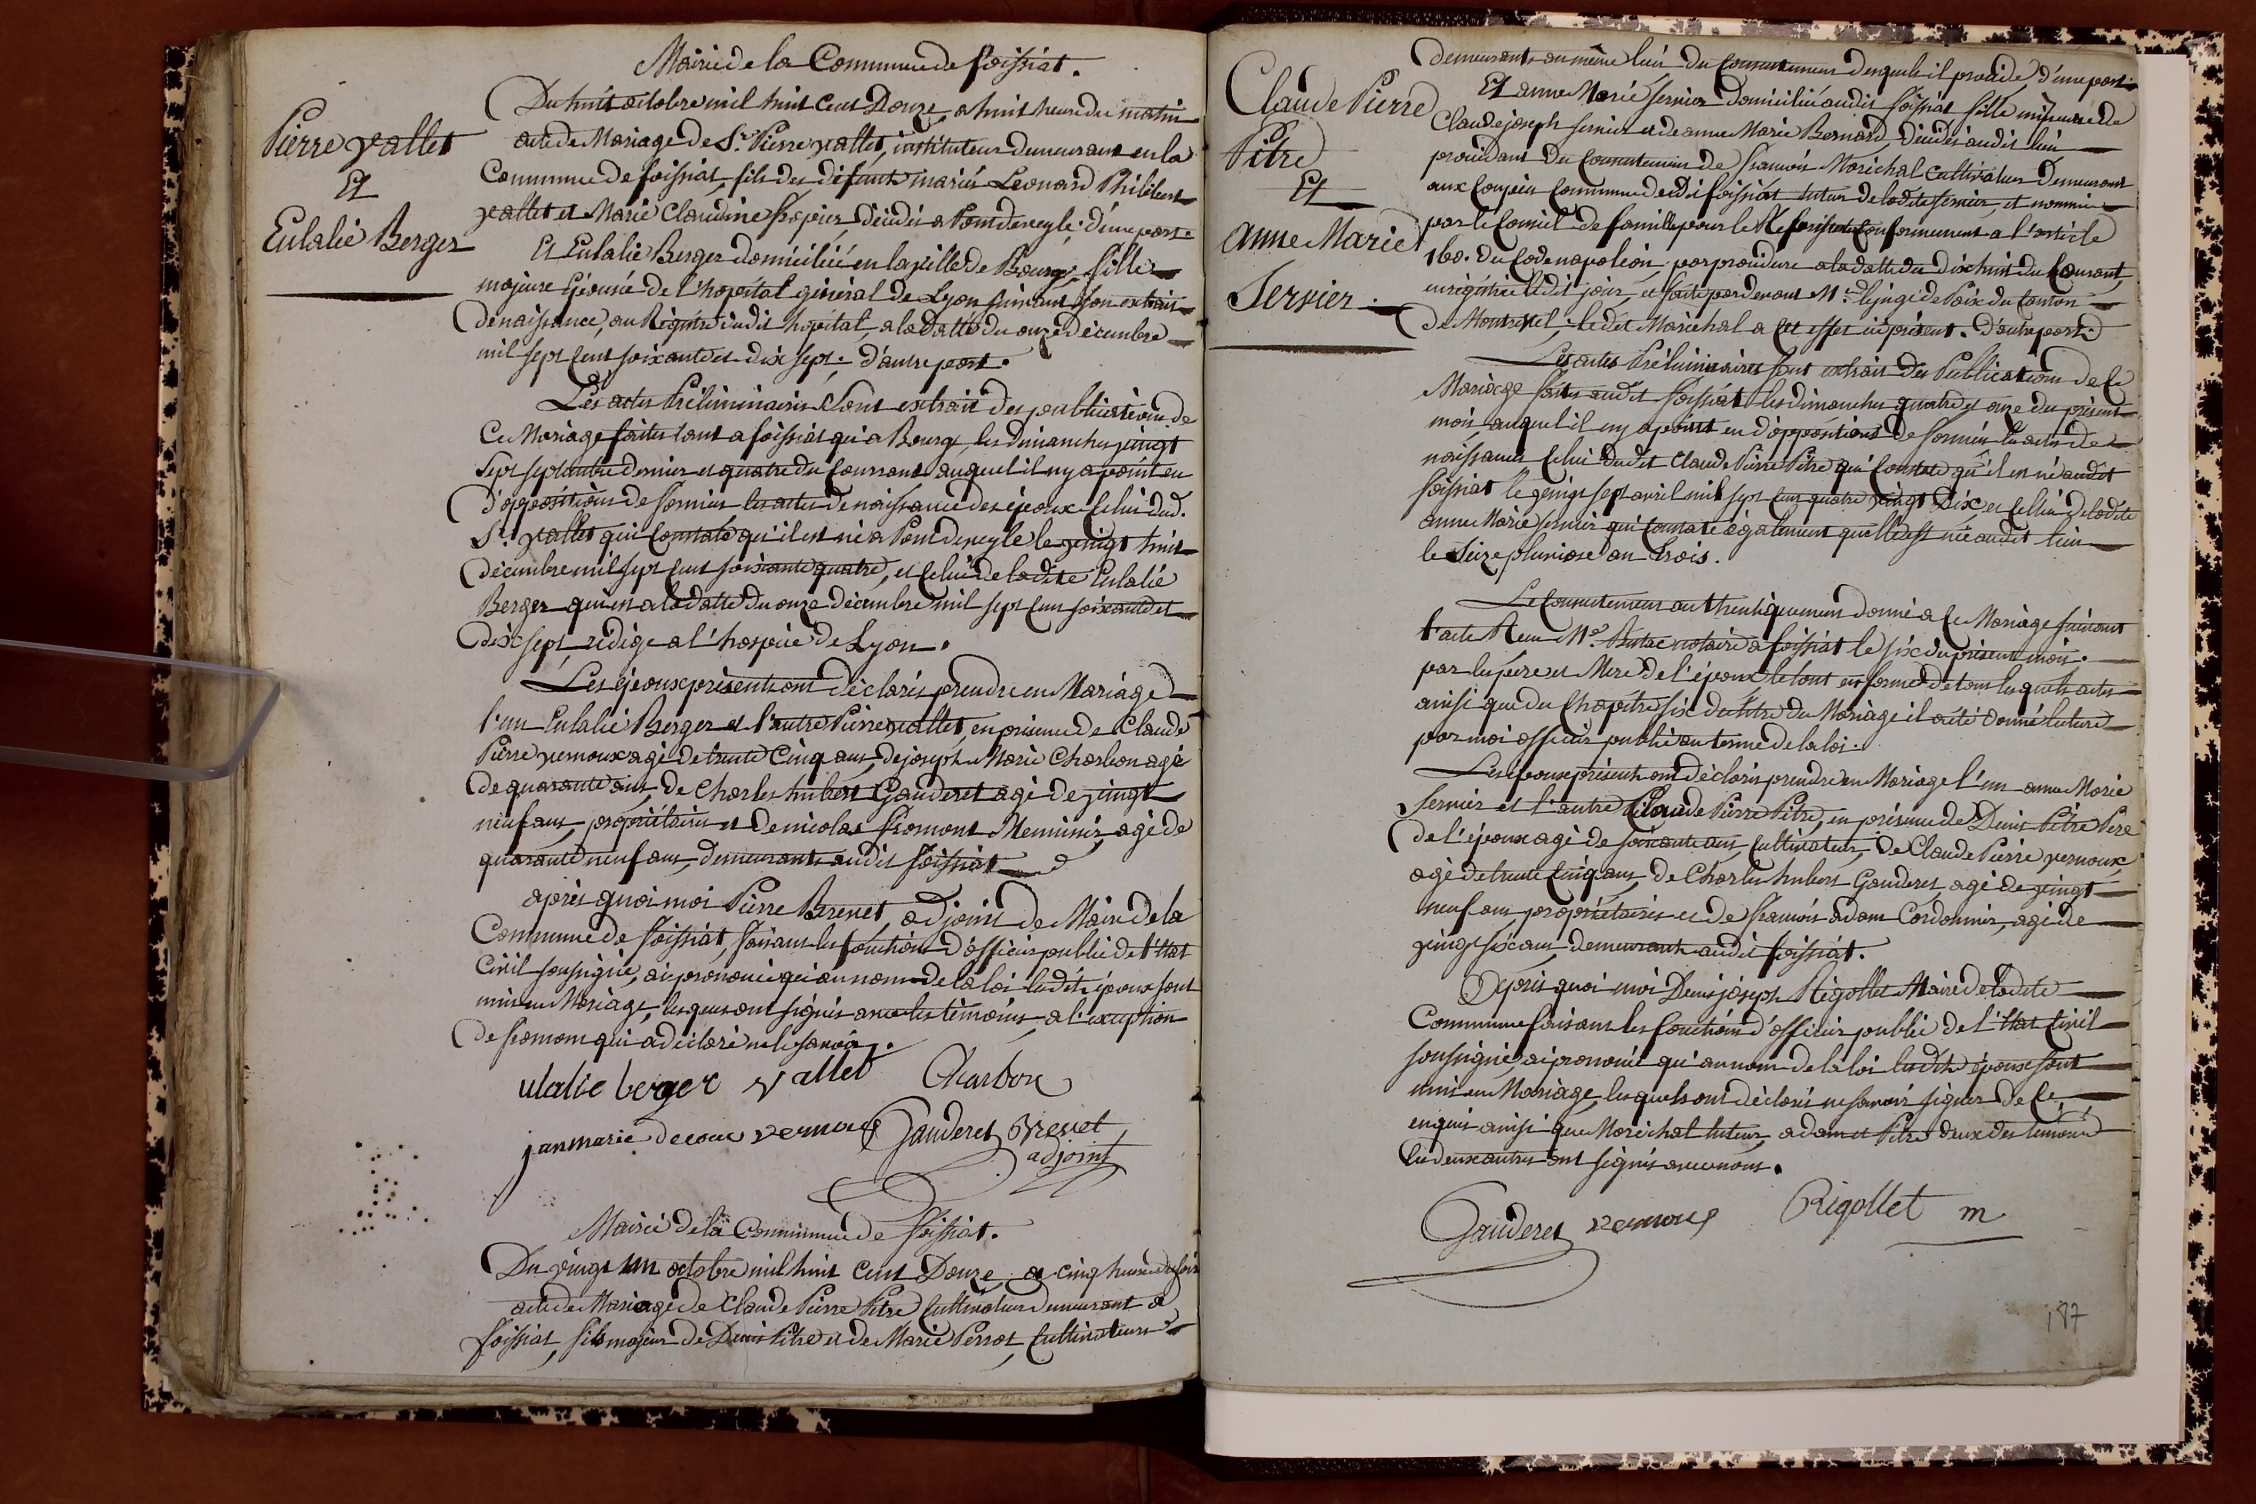 Mairie de la Commune de foissiat.
Pierre vallet
Et
Eulalie Berger
Du huit octobre mil huit Cent Douze, a huit heure du matin
acte de Mariage de Sr. Pierre vallet, instituteur demeurant en la
Commune de foissiat, fils des défunts mariés Leonard Philibert
vallet et Marie Claudine décédés a Pontdeveyle; d'une part
Et Eulalie Berger domiciliée en la ville de Bourg, fille
majeure de l'hopital général de Lyon suivant son extrait
de naissance, au Régistre dudit hopital, a la datte du onze décembre
mil sept Cent soixante et dix sept; d'autre part.
Les actes Préliminaires sont extrait des publications de
Ce Mariage faites tant a foissiat qu'a Bourg, les dimanches vingt
sept septembre dernier et quatre du Courrant auquel il ny a point eu
d'oppositions de former les actes de naissance des époux Celui dud.
Sr. vallet qui Constate qu'il est né a Pontdeveyle le vingt huit
décembre mil sept Cent soixante quatre, et Celui de ladite Eulalie
Berger qui est a la datte du onze décembre mil sept Cent soixante et
dix sept, rédigé a l'hospice de Lyon.
Les époux présents ont déclarés prendre en Mariage
l'un Eulalie Berger et l'autre Pierre vallet, en présence de Claude
Pierre vernoux agé de trente Cinq ans, de joseph Marie Charbon agé
de quarante ans, de Charles hubert Gauderet agé de vingt
neuf ans, propriétaires et de nicolas fromont Menuisier, agé de
quarante neuf ans, demeurants audit foissiat
après quoi moi Pierre Brevet, adjoint de Maire de la
Commune de foissiat, faisant les fonctions d'officier public de l'état
Civil soussigné, ai prononcé qu'au nom de la loi lesdits époux sont
unis en Mariage, lesquels ont signés avec les témoins, a l'exception
de fromont qui a déclaré ne le savoir.
ulalie berger vallet Charbon
janmarie vernoux Gauderet Brevet
adjoint
Mairie de la Commune de foissiat.
Du vingt un octobre mil huit Cent Douze, a cinq heure du soir
acte de Mariage de Claude Pierre Pitre Cultivateur demeurant a
foissiat, fils majeur de Denis Pitre et de Marie Perrot, Cultivateurs
Claude Pierre
Pitre
Et
anne Marie
Servier.
demeurants au même lieu du Consentement desquels il procède, d'une part.
Et anne Marie servier domiciliée audit foissiat fille mineure de
Claude joseph servier et de anne Marie Bernard, décédés audit lieu
procédant du Consentement de françois Maréchal Cultivateur Demeurant
aux Commune dudit foissiat tuteur de ladite servier, et nommé
par le Conseil de famille pour le conformement a l'article
160. du Code napoléon par procédure a la datte du dix huit du Courant,
enrégistrée ledit jour, et faite pardevant Mr. le juge de Paix du Canton
de Montrevel; ledit Maréchal a Cet effet ici présent. d'autre part.
Les actes Préliminaires sont extrait des Publications de Ce
Mariage faites audit foissiat les dimanches quatre et onze du présent
mois auquel il ny a point eu d'oppositions de former les actes de
naissances Celui dudit Claude Pierre Pitre qui Constate qu'il est né audit
foissiat le vingt sept avril mil sept Cent quatre vingt Dix et Celui de ladite
anne Marie servier qui Constate également quelle est née audit lieu
le seize pluviose an trois.
Le Consentement authentiquement donné a Ce Mariage suivant
l'acte Recu Me. notaire a foissiat le six du présent mois.
par les père et Mere de l'époux le tout en forme de tous lesquels actes
ainsi que du Chapitre six du titre du Mariage il a été donné lecture
par moi officier public au terme de la loi.
Les époux présents ont déclarés prendre en Mariage l'un anne Marie
servier et l'autre Claude Pierre Pitre, en présence de Denis Pitre Pere
de l'époux agé de soixante ans, Cultivateur, de Claude Pierre vernoux
agé de trente Cinq ans, de Charles hubert Gauderet, agé de vingt
neuf ans propriétaires et de françois adam Cordonnier, agé de
vingt six ans, demeurants audit foissiat.
Après quoi moi Denis joseph Rigollet Maire de ladite
Commune faisant les fonctions d'officier public de l'état Civil
soussigné, ai prononcé qu'au nom de la loi lesdits époux sont
unis en Mariage, lesquels ont déclarés ne savoir signer de Ce
enquis ainsi que Maréchal tuteur, adam et Pitre deux des témoins
les deux autres ont signés avec nous.
Gauderet vernoux Rigollet m
187